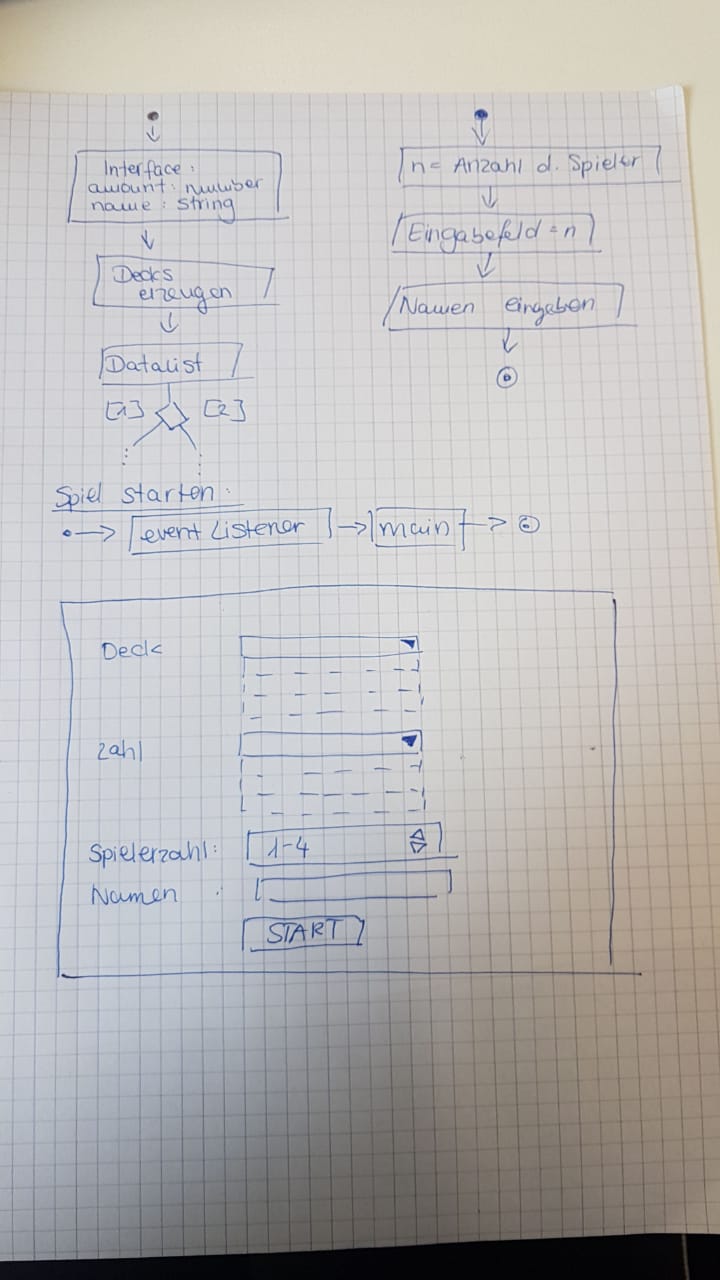 Interface:
amount: number
name: string
Decks
erzeugen
Datalist
[1] [2]
n = Anzahl d. Spieler
Eingabefeld = n
Namen eingeben
Spiel starten:
eventListener
main
Deck
Zahl
Spielerzahl: 1-4
Namen :
START